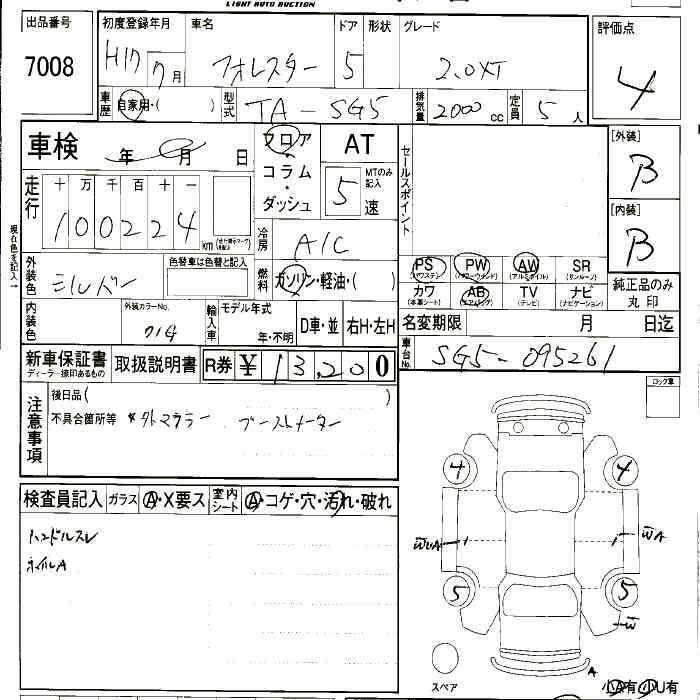 LIGHT AUTO AUCTION
出品番号 初度登録年月 車名 ドア 形状 グレード 評価点
7008 H17 7月 フォレスター 5 2.0XT 4
車歴 自家用・( ) 型式 TA-SG5 排気量 2000 cc 定員 5 人
車検 年 月 日 フロア・コラム・ダッシュ AT セールスポイント [外装] B
走行 十 万 千 百 十 一 5 速 MTのみ記入
100224 km 冷房 A/C [内装] B
外装色 シルバー 色替車は色替と記入 燃料 ガソリン・軽油・( )
PS (パワステ) PW (パワーウインド) AW (アルミホイル) SR (サンルーフ) 純正品のみ丸印
カワ (本革シート) AB (エアバッグ) TV (テレビ) ナビ (ナビゲーション)
内装色 外装カラーNo. 01G 輸入車 モデル年式 年・不明 D車・並 右H・左H 名変期限 月 日迄
新車保証書 ディーラー捺印あるもの 取扱説明書 R券 ¥ 13,200 車台No. SG5-095261
現在色を記入→
ロック車
注意事項 後日品( )
不具合箇所等 *外マフラー ブーストメーター
検査員記入 ガラス A・X要ス 室内シート A・コゲ・穴・汚れ・破れ
ハンドルスレ
ホイルA
4 4
WUA WA
5 5
W
A
スペア 小A有 小U有